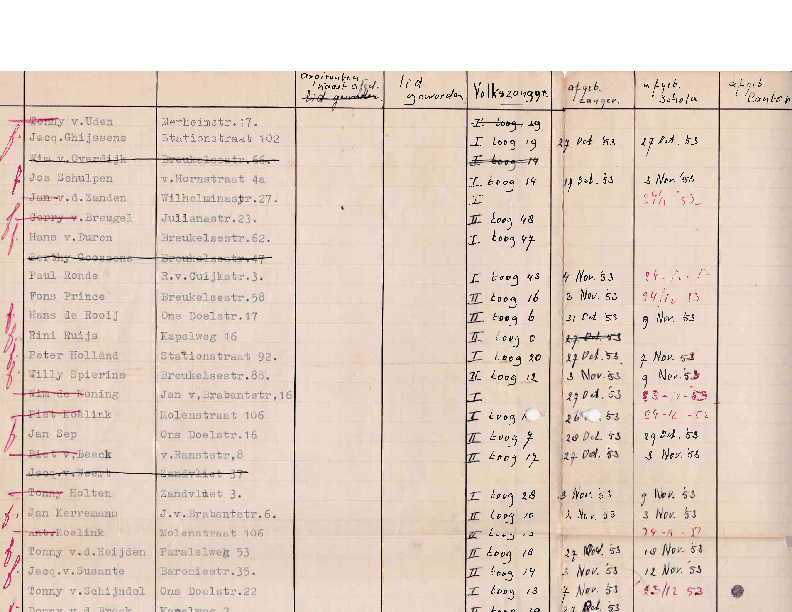 aspiranten lid Volkszanggr. afgeb. afgeb. afgeb.
naast afgel. geworden zanger. Schola Cantor
lid geworden
Tonny v.Uden Merheimstr.17. I toog 19
Jacq.Ghijssens Stationstraat 102 I toog 19 27 Oct '53 27 Oct. 53
Wim v.Overdijk Breukelsestr.66. I toog 14
Jos Schulpen v.Hornstraat 4a I toog 14 3 Nov. '53
Jan v.d.Zanden Wilhelminastr.27. I
Gerry v.Breugel Julianastr.23. II toog 48
Hans v.Duren Breukelsestr.62. I toog 47
Berthy Goossens Breukelsestr.47
Paul Ronde R.v.Cuijkstr.3. I toog 43 4 Nov. '53
Fons Prince Breukelsestr.58 II toog 16 3 Nov. 53 24/12 53
Hans de Rooij Ons Doelstr.17 II toog 6 31 Oct '53 9 Nov. 53
Rini Ruijs Kapelweg 16 II toog 27 Oct 53
Peter Holland Stationstraat 92. I toog 20 27 Oct. 53 7 Nov. 53
Willy Spierins Breukelsestr.88. II toog 12 3 Nov. 53 9 Nov. 53
Wim de Koning Jan v,Brabantstr,16 I 27 Oct. 53
Piet Koelink Molenstraat 106 I toog 53
Jan Sep Ons Doelstr.16 II toog 7 28 Oct. 53 29 Oct. 53
Piet v,Beeck v.Ranststr,8 II toog 17 27 Oct. 53 3 Nov. 53
Jacq.v.Weert Zandvliet 37
Tonny Holten Zandvliet 3. I toog 28 3 Nov. 53 9 Nov. 53
Jan Kerremans J.v.Brabantstr.6. II toog 10 3 Nov. 53
Ant.Koelink Molenstraat 106 II toog
Tonny v.d.Heijden Paralelweg 53 II toog 18 27 53 10 Nov. 53
Jacq.v.Susante Baroniestr.35. II toog 14 Nov. 53 12 Nov. 53
Tonny v.Schijndel Ons Doelstr.22 I toog 13 7 Nov. 53 23/12 53
v.d. Kapelweg toog 19 27 Oct. 53